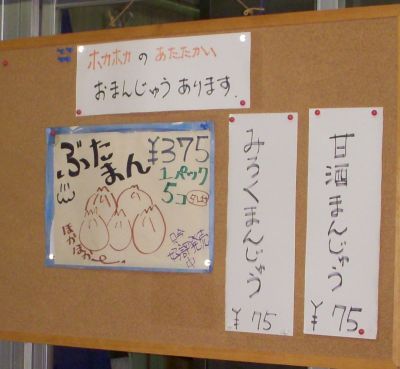 ホカホカの あたたかい
おまんじゅう あります。
ぶたまん
¥375
1パック
5コ
ほかほか
好評発売
中
みろくまんじゅう
¥75
甘酒まんじゅう
¥75.